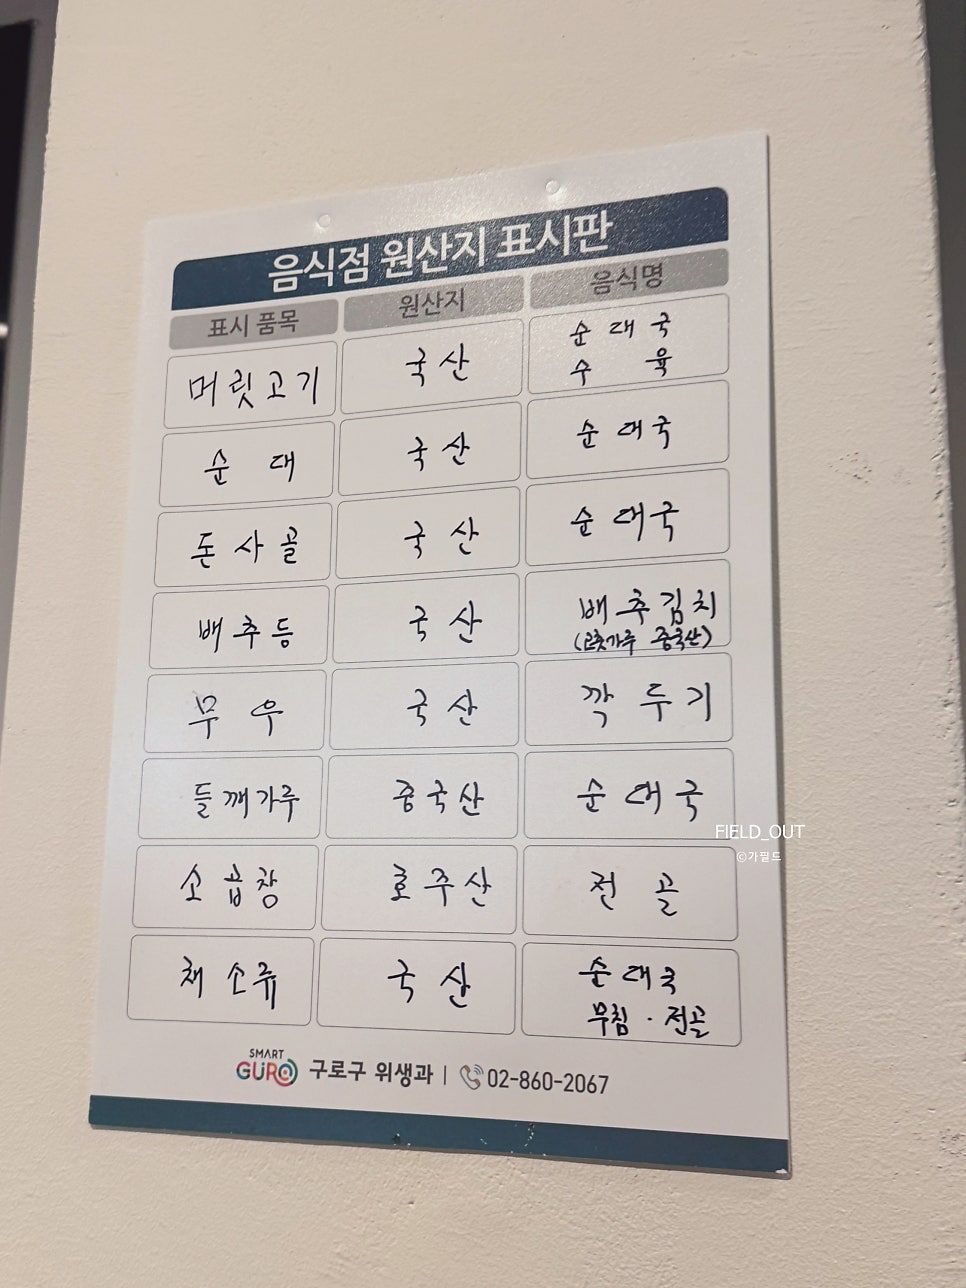 음식점 원산지 표시판
표시 품목 원산지 음식명
머릿고기 국산 순대국
수육
순대 국산 순대국
돈사골 국산 순대국
배추등 국산 배추김치
(고춧가루 중국산)
무우 국산 깍두기
들깨가루 중국산 순대국
소곱창 호주산 전골
채소류 국산 순대국
무침 · 전골
SMART
GURO 구로구 위생과 | 02-860-2067
FIELD_OUT
©가필드